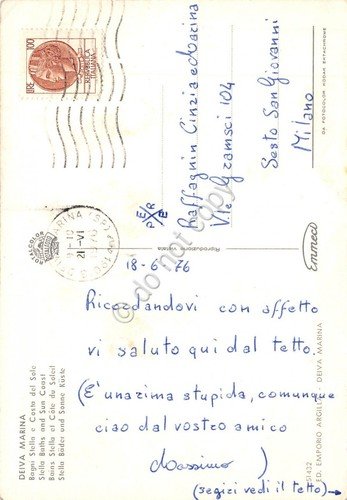 18-6-76
Ricordandovi con affetto
vi saluto qui dal tetto.
(E' una rima stupida, comunque
ciao dal vostro amico
Massimo)
(segizi vedi il tetto)→
P E/R
P E
Raffagnin Cinzia e Marina
V.le Gramsci 104
Sesto San Giovanni
Milano
LIRE 100
DEIVA MARINA
Bagni Stella e Costa del Sole
Stella Baths and Sun Coast
Bains Stella et Côte du Soleil
Stella Bäder and Sonne Küste
Riproduzione vietata
Emmeci
51432
ED. EMPORIO ARGILLA - DEIVA MARINA
DA FOTOCOLOR KODAK EKTACHROME
21-VI
do not copy